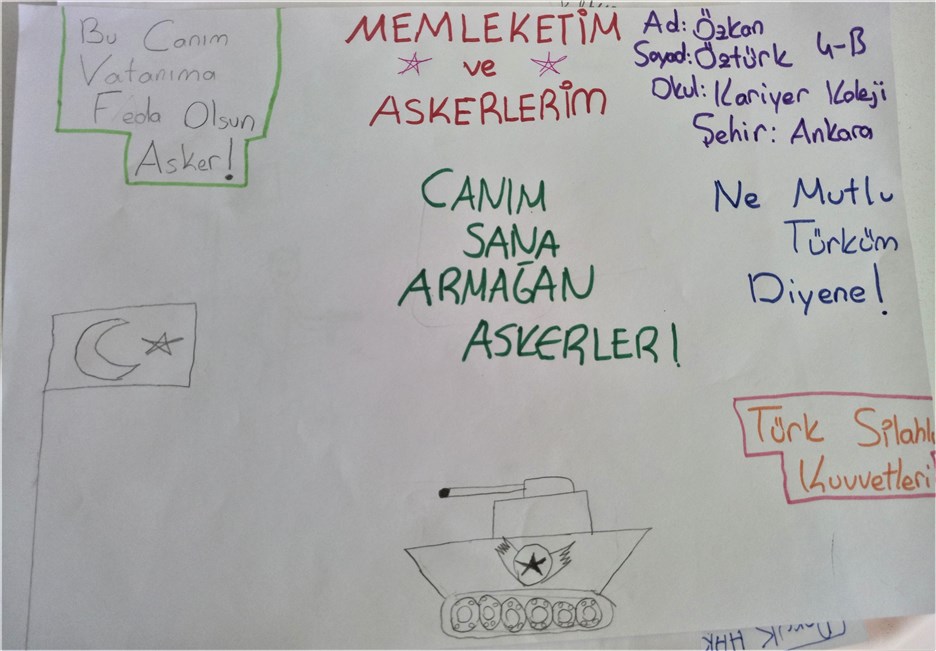 Bu Canım
Vatanıma
Feda Olsun
Asker!
MEMLEKETİM
ve
ASKERLERİM
Ad: Özkan
Soyad: Öztürk 4-B
Okul: Kariyer Koleji
Şehir: Ankara
CANIM
SANA
ARMAĞAN
ASKERLER!
Ne Mutlu
Türküm
Diyene!
Türk Silahlı
Kuvvetleri